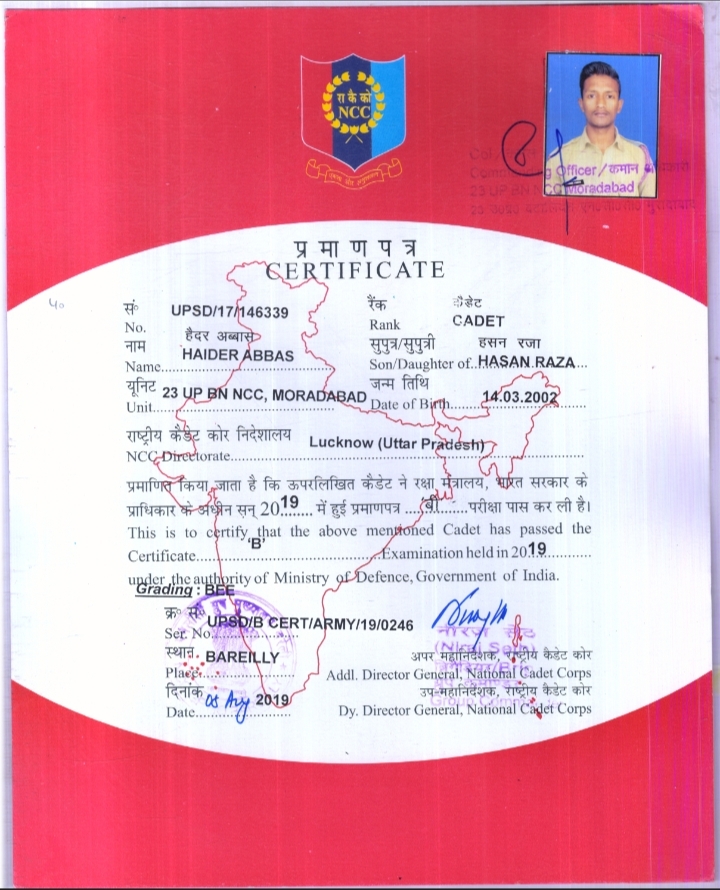 रा कै को
NCC
एकता और अनुशासन
Officer / कमान
23 UP BN NCC Moradabad
प्रमाणपत्र
CERTIFICATE
सं० UPSD/17/146339 रैंक कैडेट
No. Rank CADET
नाम हैदर अब्बास सुपुत्र/सुपुत्री हसन रजा
Name HAIDER ABBAS Son/Daughter of HASAN RAZA
यूनिट 23 UP BN NCC, MORADABAD जन्म तिथि
Unit Date of Birth 14.03.2002
राष्ट्रीय कैडेट कोर निदेशालय Lucknow (Uttar Pradesh)
NCC Directorate
प्रमाणित किया जाता है कि ऊपरलिखित कैडेट ने रक्षा मंत्रालय, भारत सरकार के
प्राधिकार के अधीन सन् 2019 में हुई प्रमाणपत्र बी परीक्षा पास कर ली है।
This is to certify that the above mentioned Cadet has passed the
Certificate 'B' Examination held in 2019
under the authority of Ministry of Defence, Government of India.
Grading : BEE
क्र० सं० UPSD/B CERT/ARMY/19/0246
Ser. No.
स्थान BAREILLY अपर महानिदेशक, राष्ट्रीय कैडेट कोर
Place Addl. Director General, National Cadet Corps
दिनांक 05 Aug 2019 उप-महानिदेशक, राष्ट्रीय कैडेट कोर
Date Dy. Director General, National Cadet Corps